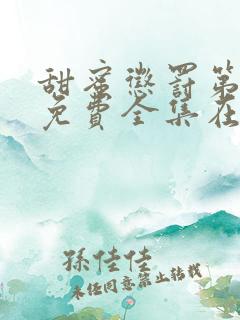 甜蜜懲罰第
免費全集在
孫佳佳
未经同意禁止转载